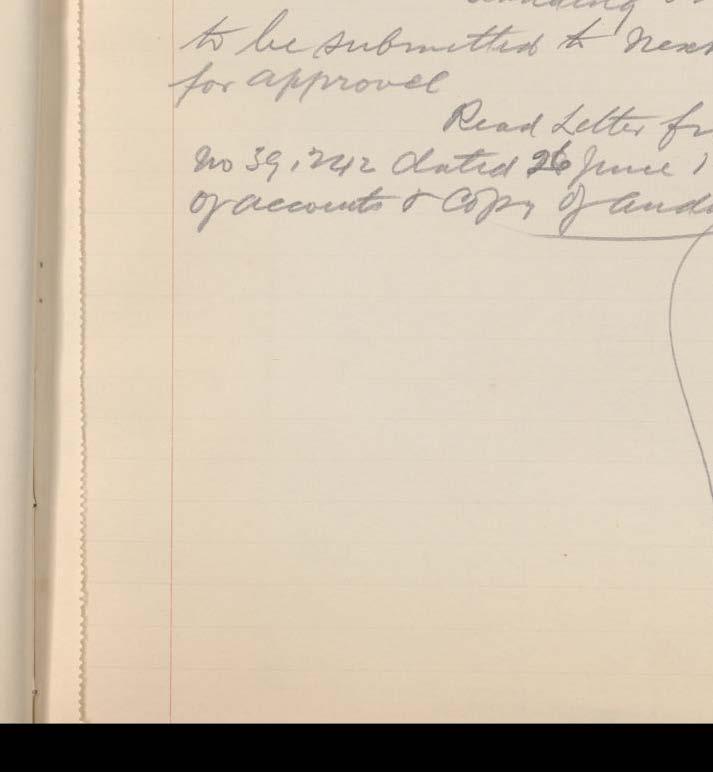 to be submitted to next
for approvel
Read Letter fr
no 39,242 dated 26 June 1
of accounts & Copy of aud